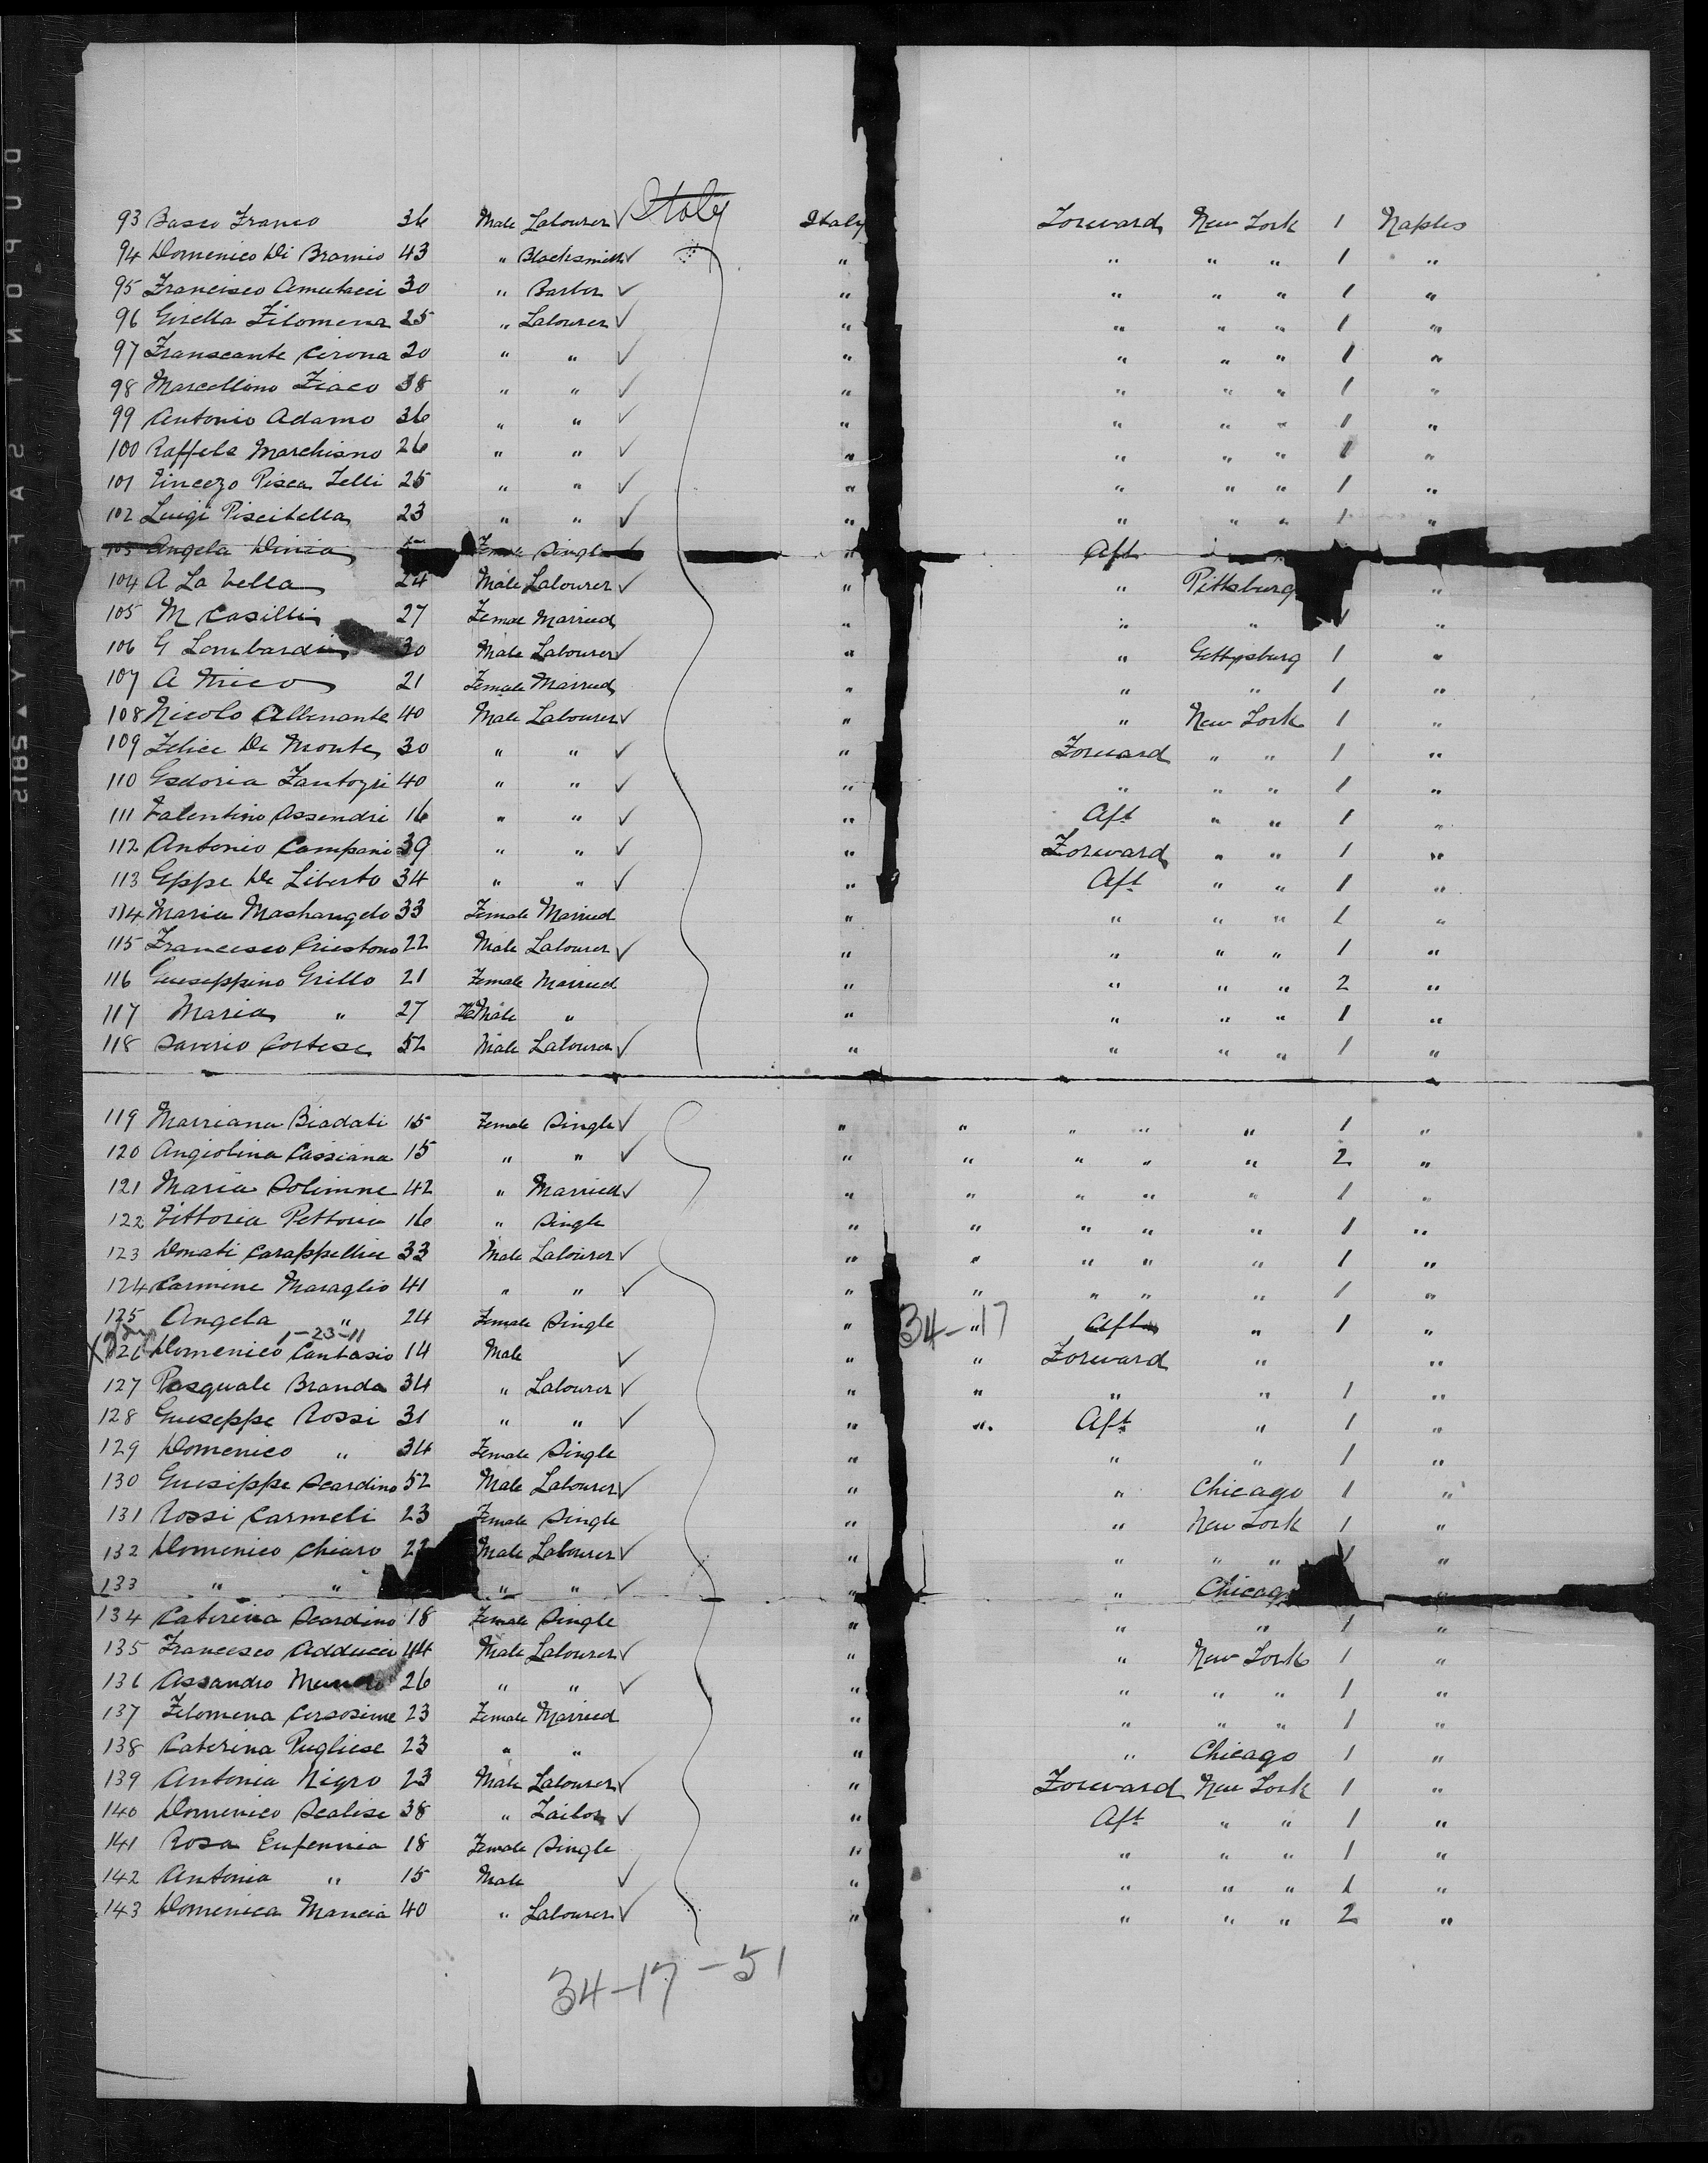 Italy
93 Basco Franco 36 Male Labourer ✓ Italy Forward New York 1 Naples
94 Domenico Di Bramio 43 " Blacksmith ✓ " " " " 1 "
95 Francisco Amutacci 30 " Barber ✓ " " " " 1 "
96 Girella Filomena 25 " Labourer ✓ " " " " 1 "
97 Franscante Cirona 20 " " ✓ " " " " 1 "
98 Marcellino Fiaco 38 " " ✓ " " " " 1 "
99 Antonio Adamo 36 " " ✓ " " " " 1 "
100 Raffele Marchisno 26 " " ✓ " " " " 1 "
101 Vincezo Pisca Felli 25 " " ✓ " " " " 1 "
102 Luigi Piscitella 23 " " ✓ " " " " 1 "
103 Angela Vinia Female Single " Aft
104 A La Vella 24 Male Labourer ✓ " " Pittsburg "
105 M Casilli 27 Female Married " " " 1 "
106 G Lombardi 30 Male Labourer ✓ " " Gettysburg 1 "
107 A Nico 21 Female Married " " " 1 "
108 Nicolo Albinante 40 Male Labourer ✓ " " New York 1 "
109 Felice De Monte 30 " " ✓ " Forward " " 1 "
110 Gsdoria Fantozzi 40 " " ✓ " " " " 1 "
111 Valentino Assendri 16 " " ✓ " Aft " " 1 "
112 Antonio Campani 39 " " ✓ " Forward " " 1 "
113 Gppe De Liberto 34 " " ✓ " Aft " " 1 "
114 Maria Mashangelo 33 Female Married " " " " 1 "
115 Francesco Criestono 22 Male Labourer ✓ " " " " 1 "
116 Guiseppino Grillo 21 Female Married " " " " 2 "
117 Maria " 27 FeMale " " " " " 1 "
118 Saverio Cortese 52 Male Labourer ✓ " " " " 1 "
119 Marriana Biadati 15 Female Single ✓ " " " " " 1 "
120 Angiolina Cassiana 15 " " ✓ " " " " " 2 "
121 Maria Solimne 42 " Married ✓ " " " " " 1 "
122 Vittoria Pettoria 16 " Single " " " " " 1 "
123 Donati Carappellice 33 Male Labourer ✓ " " " " " 1 "
124 Carmine Maraglio 41 " " ✓ " " " " " 1 "
125 Angela " 24 Female Single " 34-17 " Aft " 1 "
1-23-11
126 Domenico Cantasio 14 Male ✓ " " Forward " "
127 Pasquale Branda 34 " Labourer ✓ " " " " 1 "
128 Guiseppe Rossi 31 " " ✓ " " Aft " 1 "
129 Domenico " 34 Female Single " " " 1 "
130 Guiseppe Scardino 52 Male Labourer ✓ " " Chicago 1 "
131 Rossi Carmeli 23 Female Single " " New York 1 "
132 Domenico Chiaro Male Labourer ✓ " " " " 1 "
133 " " " " ✓ " " Chicago "
134 Caterina Scardino 18 Female Single " " " 1 "
135 Francesco Adduci 44 Male Labourer ✓ " " New York 1 "
136 Assandro 26 " " ✓ " " " " 1 "
137 Filomena Cersosime 23 Female Married " " " " 1 "
138 Caterina Pugliese 23 " " " " Chicago 1 "
139 Antonia Nigro 23 Male Labourer ✓ " Forward New York 1 "
140 Domenico Scalise 38 " Tailor ✓ " Aft " " 1 "
141 Rosa Eufennia 18 Female Single " " " " 1 "
142 Antonia " 15 Male ✓ " " " " 1 "
143 Domenica Mancia 40 " Labourer ✓ " " " " 2 "
34-17-51